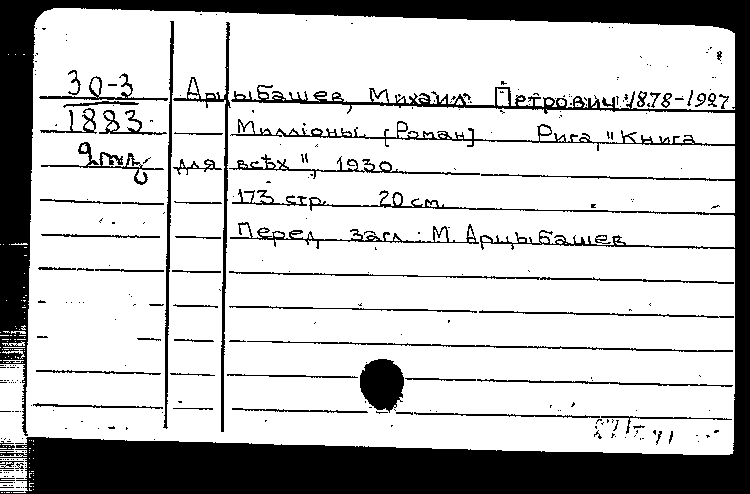 30-3 Арцыбашев, Михаил Петрович 1878-1927
1883 Милліоны. [Роман] Рига, "Книга
для всѣх", 1930
173 стр. 20 см.
Перед загл.: М. Арцыбашев